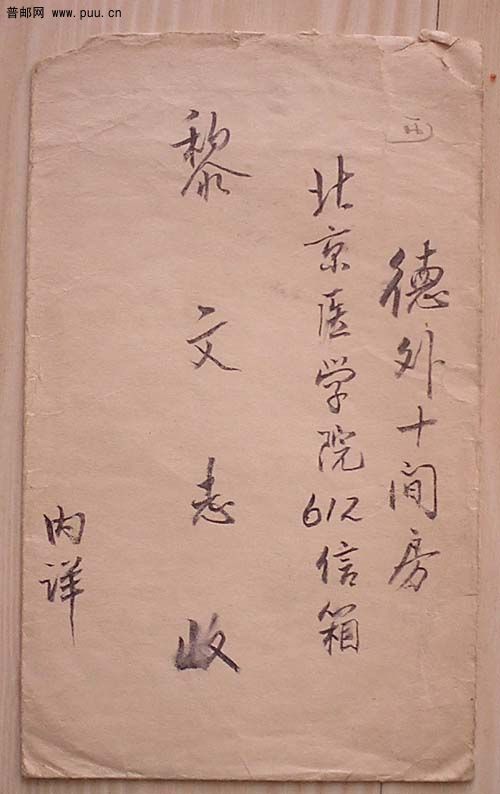 普邮网 www.puu.cn
德外十间房
北京医学院612信箱
黎文志收
内详